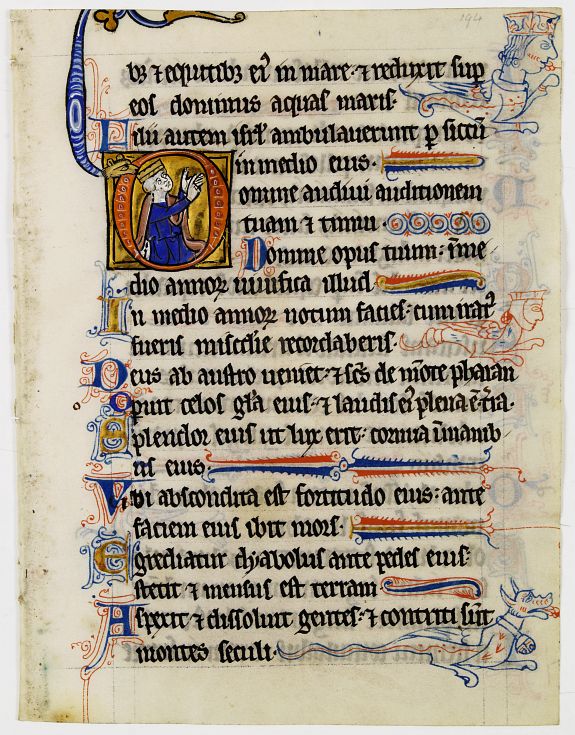 194
bꝫ ⁊ eqⁱtibꝫ eiꝰ in mare · ⁊ reduxit sup̄
eos dominus aquas maris·
Filii autem isrl̄ ambulauerunt p̄ siccū
in medio eius ·
Domine audiui auditionem
tuam ⁊ timui ·
Domine opus tuum : ī me
dio annoꝝ uiuifica illud
In medio annoꝝ notum facies : cum iratꝰ
fueris misc̄die recordaberis·
Deus ab austro ueniet · ⁊ sc̄s de mōte pharan
Operuit celos gl̄a eius · ⁊ laudis eiꝰ plena ē t̄ra·
Splendor eius ut lux erit : cornua ī manib
us eius
Vbi abscondita est fortitudo eius : ante
faciem eius ibit mors·
Egredietur dyabolus ante pedes eius
stetit ⁊ mensus est terram
Aspexit ⁊ dissoluit gentes · ⁊ contriti sūt
montes seculi·